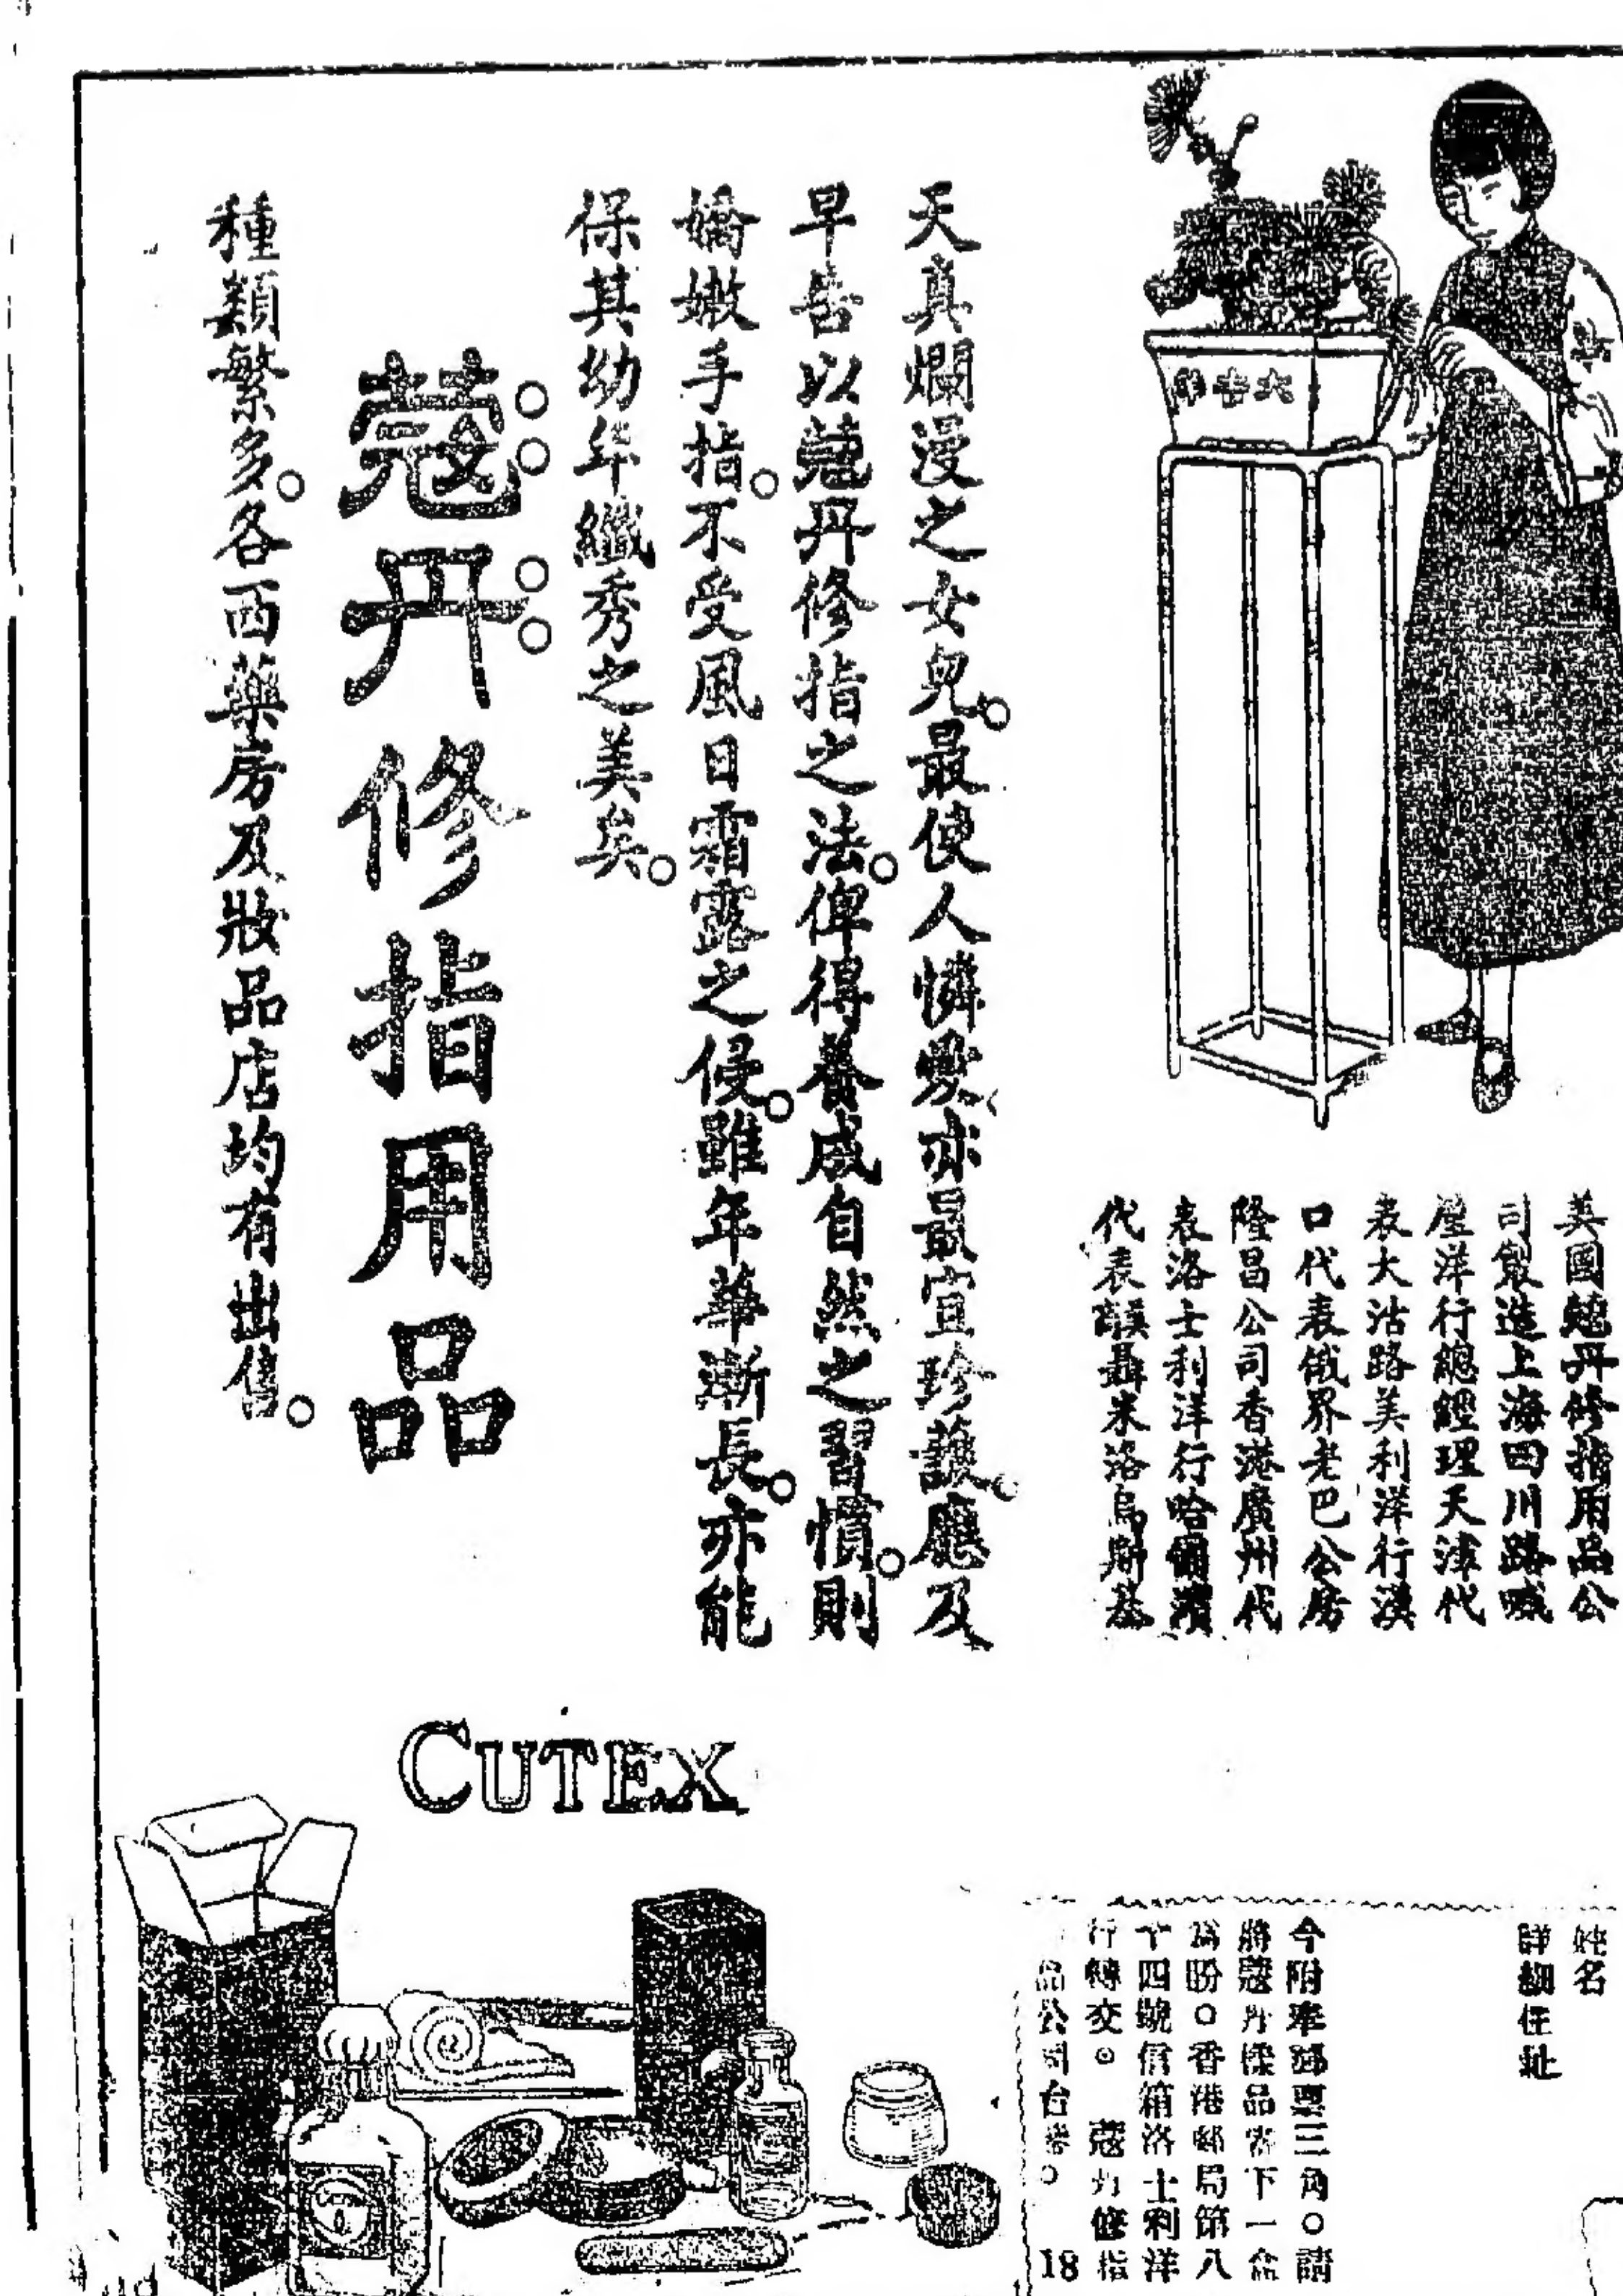 天真爛漫之女兒。最使人憐愛亦最宜珍護。應及
早告以蔻丹修指之法。俾得養成自然之習慣。則
嬌嫩手指。不受風日霜露之侵。雖年華漸長。亦能
保其幼年纖秀之美矣。
蔻丹修指用品
種類繁多。各西藥房及妝品店均有出售。
美國蔻丹修指用品公
司製造上海四川路
屋洋行總經理天津代
表大沽路美利洋行漢
口代表俄界老巴公房
隆昌公司香港廣州代
表洛士利洋行哈爾濱
代表聶米洛烏斯基
CUTEX
姓名
詳細住址
今附奉郵票三角。請
將蔻丹樣品寄下一盒
為盼。香港郵局第八
十四號信箱洛士利洋
行轉交。蔻丹修指
品公司台。 18